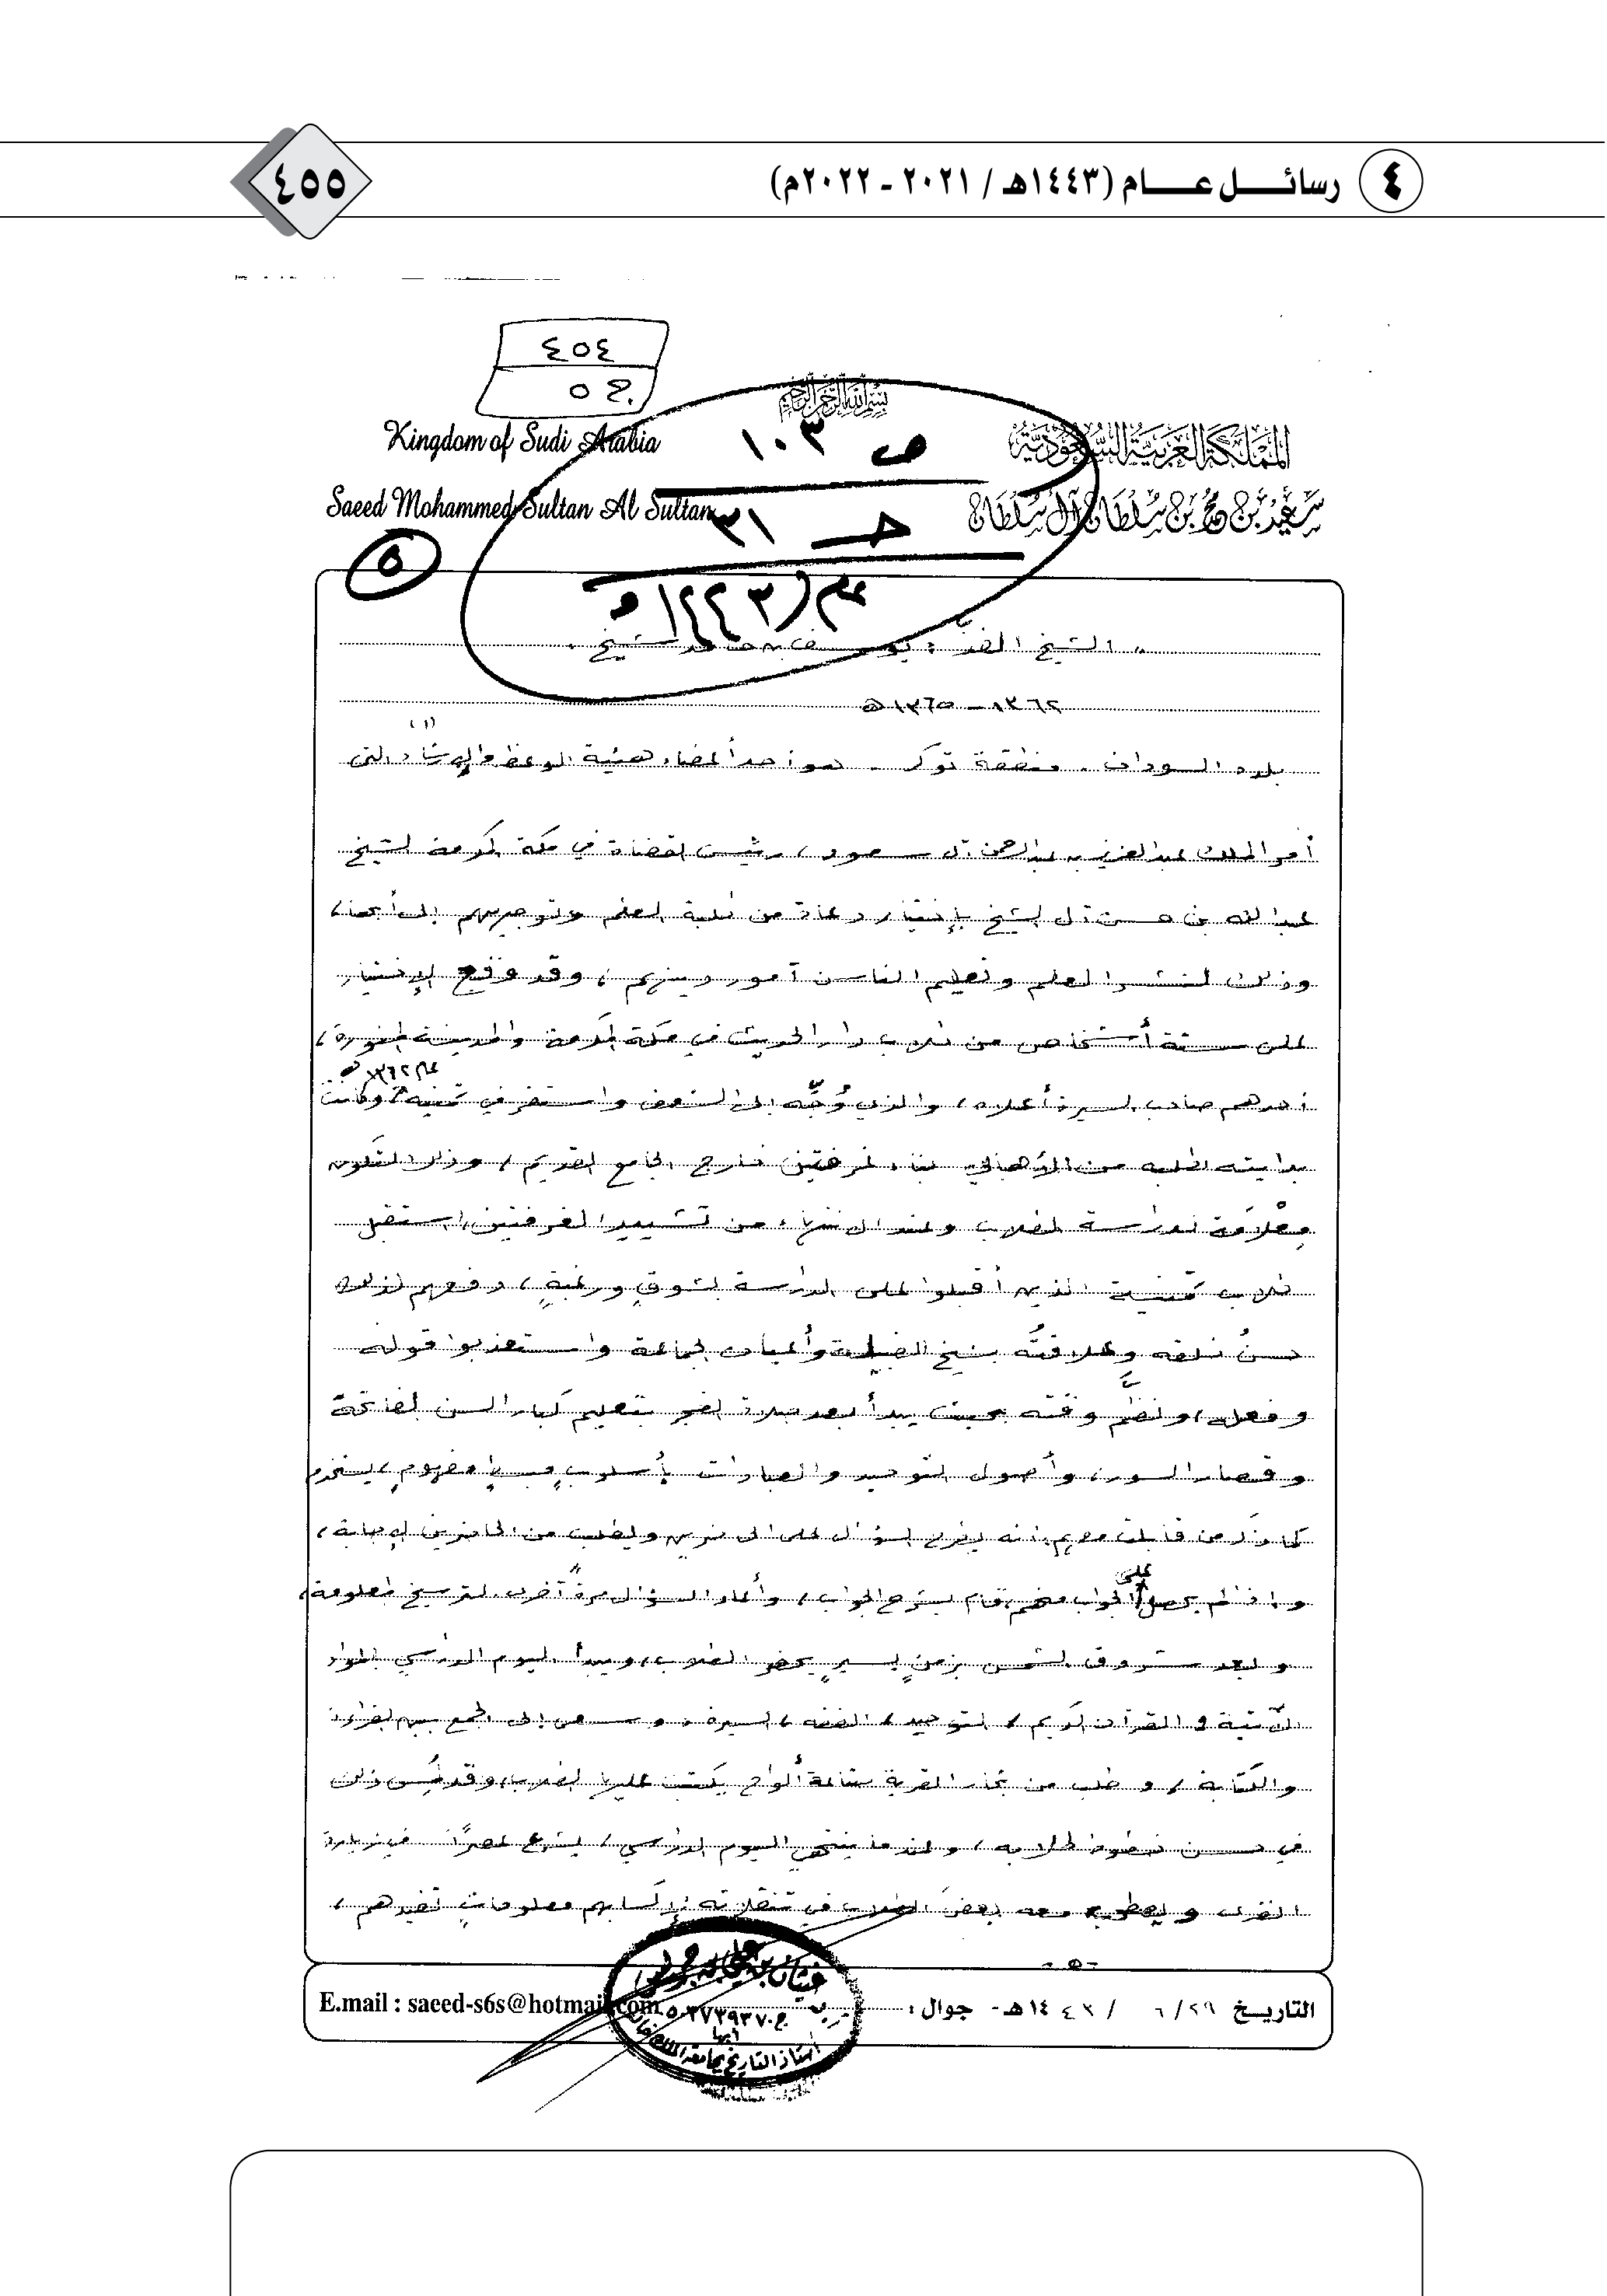 ٤ رسائل عام (١٤٤٣هـ / ٢٠٢١ ـ ٢٠٢٢م)
٤٥٥
٤٥٤
ج ٥
بسم الله الرحمن الرحيم
Kingdom of Sudi Arabia
المملكة العربية السعودية
ص ١٠٣
Saeed Mohammed Sultan Al Sultan
سعيد بن محمد بن سلطان آل سلطان
٥
الشيخ الفذ : يوسف بن حامد الشيخ .
١٣٦٢ - ١٣٦٥هـ
(١)
بلاد السودان . منطقة توكر . هو أحد أعضاء هيئة الوعظ والإرشاد التي
أمر الملك عبدالعزيز بن عبدالرحمن آل سعود، رئيس القضاة في مكة المكرمة الشيخ
عبدالله بن حسن آل الشيخ بإختيار دعاة من طلبة العلم وتوجيههم إلى أبها،
وذلك لنشر العلم وتعليم الناس أمور دينهم، وقد وقع الإختيار
على ستة أشخاص من طلاب دار الحديث في مكة المكرمة والمدينة المنورة،
عام ١٣٦٢هـ
أحدهم صاحب السيرة أعلاه، والذي وُجِّه إلى النعص واستقر في تمنية، وكانت
بدايته الطلب من الأهالي بناء غرفتين خارج الجامع القديم، وذلك لتكون
ملائمة لدراسة الطلاب وعند الانتهاء من تشييد الغرفتين، استقبل
طلاب تمنية الذين أقبلوا على الدراسة بشوقٍ ورغبةٍ، دفعهم لذلك
حسنُ خلقه وعلاقتُه بشيخ القبيلة وأعيان الجماعة واستعذبوا قوله
وفعله، ونظَّم وقته بحيث يبدأ بعد صلاة الفجر بتعليم كبار السن الفاتحة
وقصار السور، وأصول التوحيد والعبادات بأسلوبٍ مبسطٍ مفهومٍ، يستخدم
كما ذكر من قابلت معهم: أنه يطرح السؤال على الدارسين ويطلب من الحاضرين الإجابة،
على
وإذا لم يحصل الجواب منهم، قام بشرح الجواب، وأعاد السؤال مرةً أخرى لترسيخ المعلومة،
وبعد شروق الشمس بزمنٍ يسيرٍ يحضر الطلاب، ويبدأ اليوم الدراسي بالمواد
الآتية: القرآن الكريم، التوحيد، الفقه، السيرة. وسعى إلى الجمع بين القراءة
والكتابة، وطلب من نجار القرية صناعة ألواح يكتب عليها الطلاب، وقد ذلك
في حسن خطوط طلابه، وعندما ينتهي اليوم الدراسي، يشرع عصرًا في زيارة
القرى ويصطحب معه بعض الطلاب في تنقلاته لإكسابهم معلوماتٍ تفيدهم،
- ٥ -
التاريخ ٢٩ / ٦ / ١٤٤٣هـ - جوال :
E.mail : saeed-s6s@hotmail.com
أبها
أستاذ التاريخ بجامعة الملك خالد